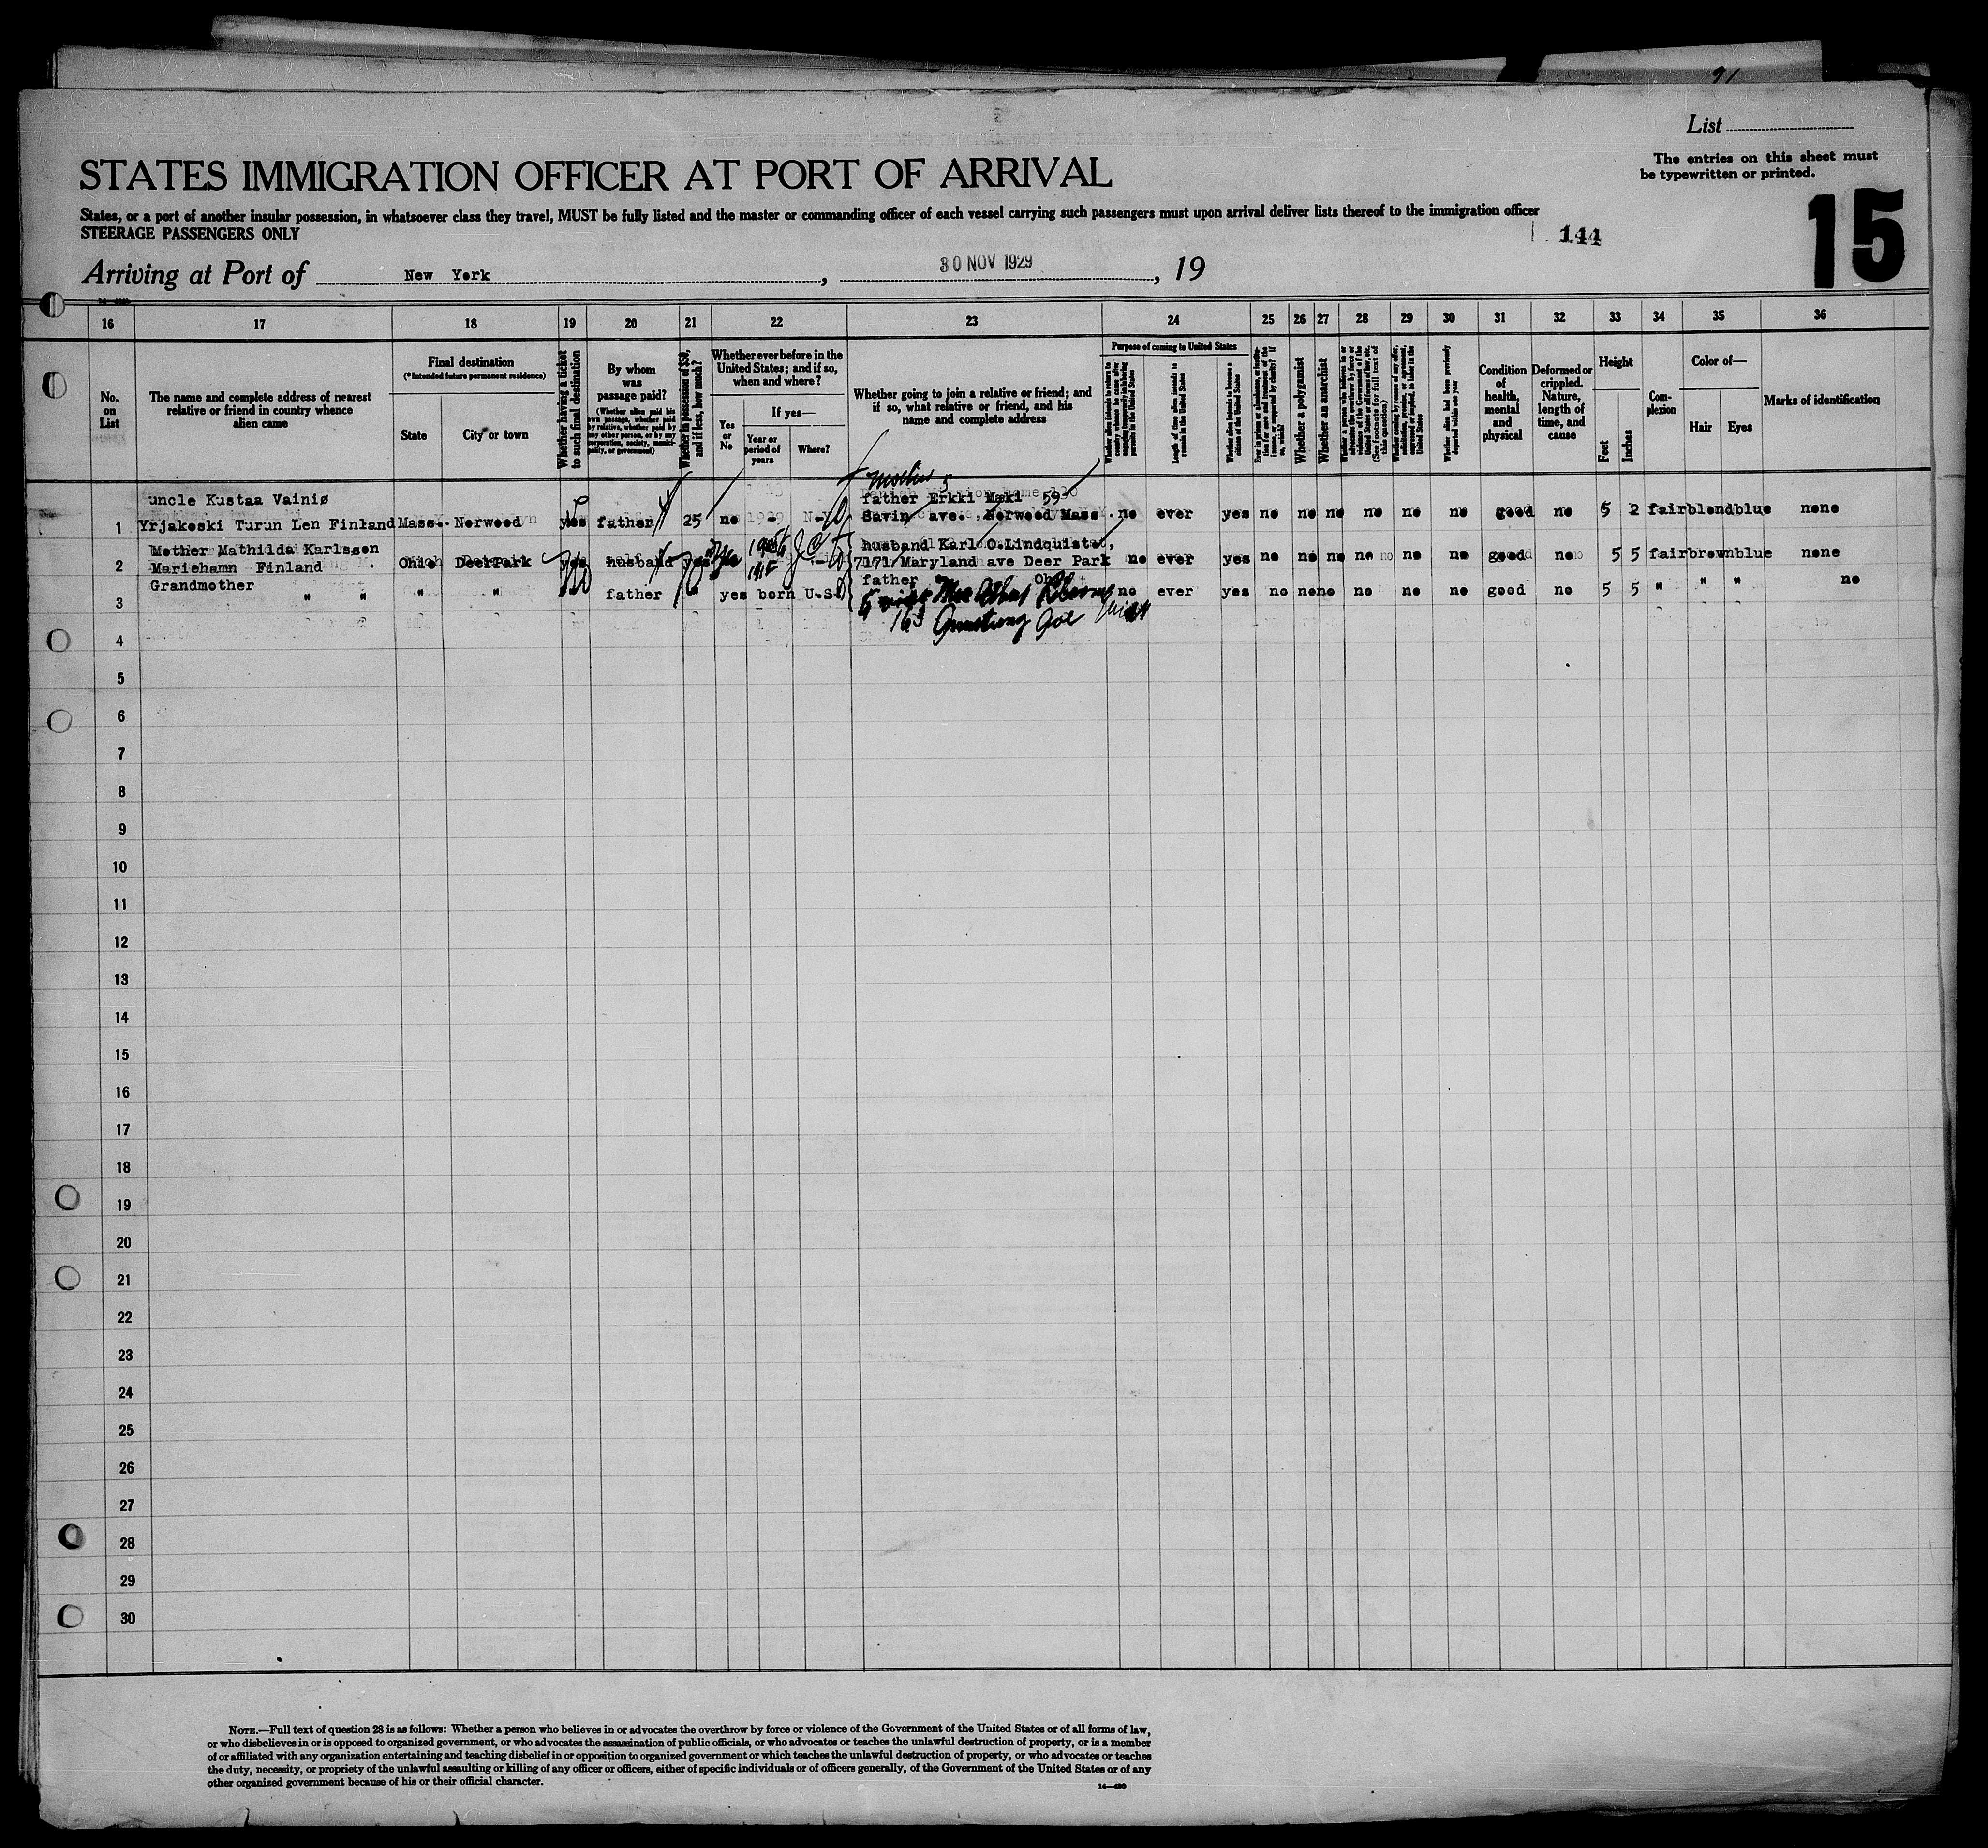 List
The entries on this sheet must
be typewritten or printed.
STATES IMMIGRATION OFFICER AT PORT OF ARRIVAL
15
States, or a port of another insular possession, in whatsoever class they travel, MUST be fully listed and the master or commanding officer of each vessel carrying such passengers must upon arrival deliver lists thereof to the immigration officer
STEERAGE PASSENGERS ONLY
144
Arriving at Port of New York, 30 NOV 1929, 19
16 17 18 19 20 21 22 23 24 25 26 27 28 29 30 31 32 33 34 35 36
No. on List
The name and complete address of nearest relative or friend in country whence alien came
Final destination
(*Intended future permanent residence)
State
City or town
Whether having a ticket to such final destination
By whom was passage paid?
(Whether alien paid his own passage, whether paid by relative, whether paid by any other person, or by any corporation, society, municipality, or government)
Whether in possession of $50, and if less, how much?
Whether ever before in the United States; and if so, when and where?
Yes or No
If yes—
Year or period of years
Where?
Whether going to join a relative or friend; and if so, what relative or friend, and his name and complete address
Purpose of coming to United States
Whether alien intends to return to country whence he came after engaging temporarily in laboring pursuits in the United States
Length of time alien intends to remain in the United States
Whether alien intends to become a citizen of the United States
Whether a polygamist
Whether an anarchist
Condition of health, mental and physical
Deformed or crippled. Nature, length of time, and cause
Height
Feet
Inches
Complexion
Color of—
Hair
Eyes
Marks of identification
mother
uncle Kustaa Vainiø father Erkki Mæki 59
1 Yrjakoski Turun Len Finland Mass. Norwood yes father 25 no - - Savin ave. Norwood Mass. no ever yes no no no no no no good no 5 2 fair blond blue none
Mother Mathilda Karlsson husband Karl O.Lindquist,
2 Mariehamn Finland Ohio DeerPark yes husband yes Yes 7171 Maryland ave Deer Park no ever yes no no no no no no good no 5 5 fair brown blue none
Grandmother father Ohio
3 " " " " no father " yes born U.S. no ever yes no no no no no no good no 5 5 " " " no
163 Armstrong Ave
4
5
6
7
8
9
10
11
12
13
14
15
16
17
18
19
20
21
22
23
24
25
26
27
28
29
30
NOTE.—Full text of question 28 is as follows: Whether a person who believes in or advocates the overthrow by force or violence of the Government of the United States or of all forms of law,
or who disbelieves in or is opposed to organized government, or who advocates the assassination of public officials, or who advocates or teaches the unlawful destruction of property, or is a member
of or affiliated with any organization entertaining and teaching disbelief in or opposition to organized government or which teaches the unlawful destruction of property, or who advocates or teaches
the duty, necessity, or propriety of the unlawful assaulting or killing of any officer or officers, either of specific individuals or of officers generally, of the Government of the United States or of any
other organized government because of his or their official character.
14—430